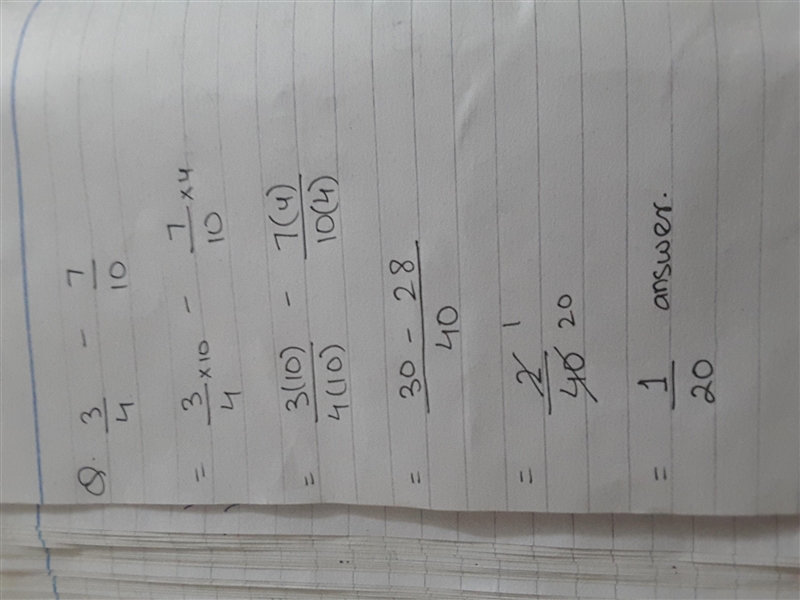 Q. 3/4 - 7/10
= 3/4 ×10 - 7/10 ×4
= 3(10)/4(10) - 7(4)/10(4)
= 30 - 28/40
= 2/40 1 20
= 1/20 answer.